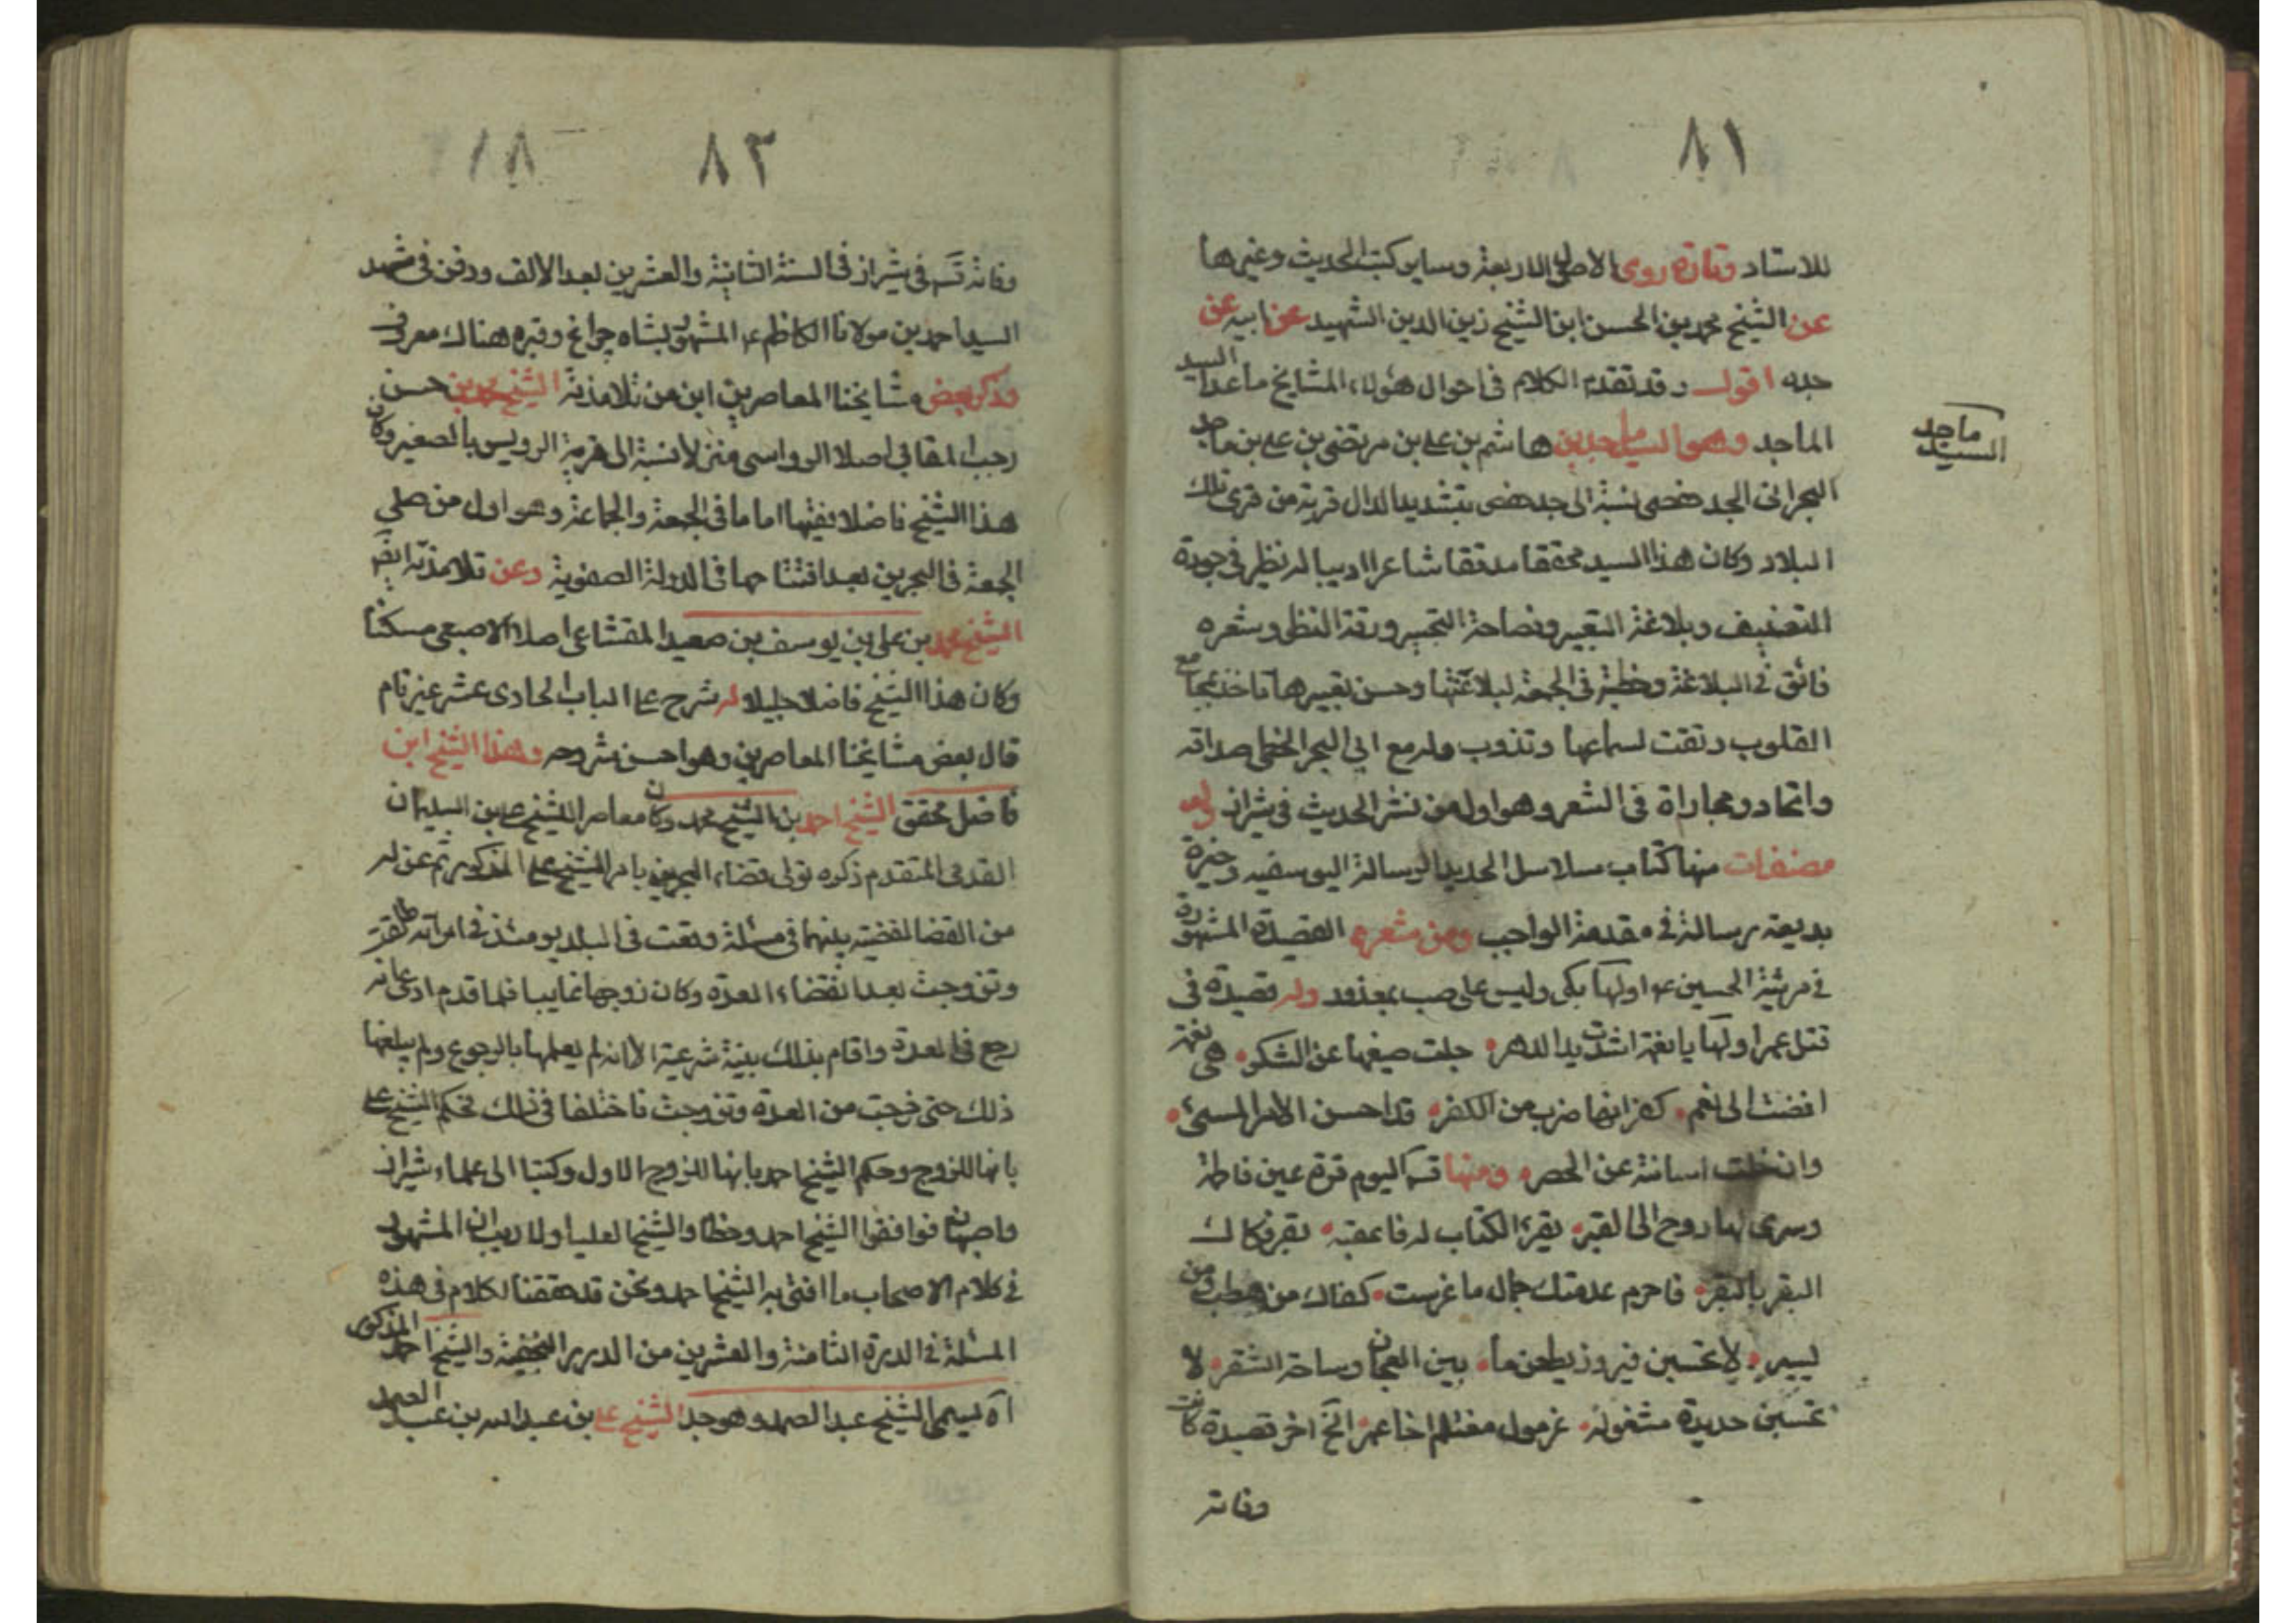 ٨١
للاستاد وتارة روى الاصول الاربعة وساير كتب الحديث وغيرها
عن الشيخ محمد بن الحسن ابن الشيخ زين الدين الشهيد عن ابيه عن
جده اقول وقد تقدم الكلام فى احوال هؤلاء المشايخ ماعدا السيد
ماجد السيد
الماجد وهو السيد ماجد بن هاشم بن على بن مرتضى بن على بن ماجد
البحرانى الجد حفصى نسبة الى جد حفص بتشديد الدال قرية من قرى تلك
البلاد وكان هذا السيد محققا مدققا شاعرا اديبا له نظير فى جودة
التصنيف وبلاغة التعبير وفصاحة التحبير ودقة النظر وشعره
فائق فى البلاغة وخطبه فى الجمعة لبلاغتها وحسن تعبيرها تاخذ بمجامع
القلوب وتفت لسماعها وتذوب وله مع ابى البحر الخطى صداقه
واتحاد ومجاراة فى الشعر وهو اول من نشر الحديث فى شيراز وله
مصنفات منها كتاب سلاسل الحديد الرسالة اليوسفيه وجيزة
بديعة رسالة فى مقدمة الواجب ومن شعره القصيدة المشهورة
فى مرثية الحسين ع اولها بكى وليس على صب بمعذور وله قصيدة فى
قتل عمر اولها يا نغمة اشدت يد الدهر جلت صيغها عن الشكر هى نغمة
افضت الى نغم كفرانها ضرب من الكفر قد احسن الامر المسىء
وان خلت اسانته عن الحصر ومنها قسما اليوم قرة عين فاطمة
وسرى لها روح الى القبر بقر الكتاب له فاعقبه بقر فكان
البقر بالبقر فاحرم عدمتك جمال ما غرست كفاك من
يسير لا تحسبن فيروز يطعن ما بين العجان وساحة الشفر لا
تحسبن حديدة مشغولة غرمول مغتلم اخا عمر الخ اخر قصيدة كانت
وفاته
٨٢
وفاته تم فى شيراز فى السنة الثانية والعشرين بعد الالف ودفن فى مشهد
السيد احمد بن مولانا الكاظم ع المشهور بشاه چراغ وقبره هناك معروف
وذكر بعض مشايخنا المعاصرين ابن من تلامذته الشيخ محمد بن حسن
رجب المقابى اصلا الرواسى منزلا نسبة الى قرية الرويس بالصغير وكان
هذا الشيخ فاضلا فقيها اماما فى الجمعة والجماعة وهو اول من صلى
الجمعة فى البحرين بعد افتتاحها فى الدولة الصفوية وعن تلامذته ايضا
الشيخ محمد بن على بن يوسف بن سعيد المقشاعى اصلا الاصبعى مسكنا
وكان هذا الشيخ فاضلا جليلا له شرح على الباب الحادى عشر غير تام
قال بعض مشايخنا المعاصرين وهو احسن شروحه وهذا الشيخ ابن
فاضل محقق الشيخ احمد بن الشيخ محمد وكان معاصرا للشيخ على بن السليمان
القدمى المتقدم ذكره تولى قضاء البحرين بامر الشيخ على المذكور ثم عزله
من القضا لقضية بينهما فى مسئلة وقعت فى البلد يومئذ فى امراته طلقت
وتزوجت بعد انقضاء العدة وكان زوجها غايبا فلما قدم ادعى انه
رجع فى العدة واقام بذلك بينة شرعية الا انه لم يعلمها بالرجوع ولم يبلغها
ذلك حتى خرجت من العدة وتزوجت فاختلفا فى ذلك فحكم الشيخ على
بانها للزوج وحكم الشيخ احمد بانها للزوج الاول وكتبا الى علماء شيراز
واصبهان فوافقوا الشيخ احمد وخطاوا الشيخ العليا ولا ريب ان المشهور
فى كلام الاصحاب ما افتى به الشيخ احمد ونحن قد حققنا الكلام فى هذه
المسئلة فى الدرة الثامنة والعشرين من الدرر النجفية والشيخ احمد المذكور
اه يسمى الشيخ عبد الصمد وهو جد الشيخ على بن عبد الله بن عبد الصمد